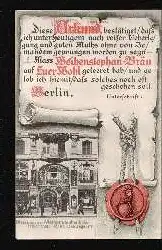 Diese Urkund, bestätiget, daß
ich unterfertigtem nach reifer Ueberle-
gung und guten Muths ohne von Je-
mandem gezwungen worden zu seyn
Mass Weihenstephan-Bräu
auf Euer Wohl geleeret hab, und ge-
lob ich hiemit, dass solches noch oft
geschehen soll
Berlin,
Unterschrift: